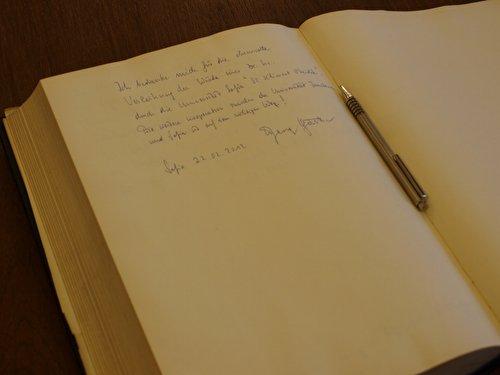 Ich bedanke mich für die ehrenvolle
Verleihung der Würde eines Dr. hc.
durch die Universität Sofia "St. Kliment Ohridski".
Die weitere Kooperation zwischen der Universität
und Sofia ist auf dem richtigen Weg!
Sofia 22.02.2012